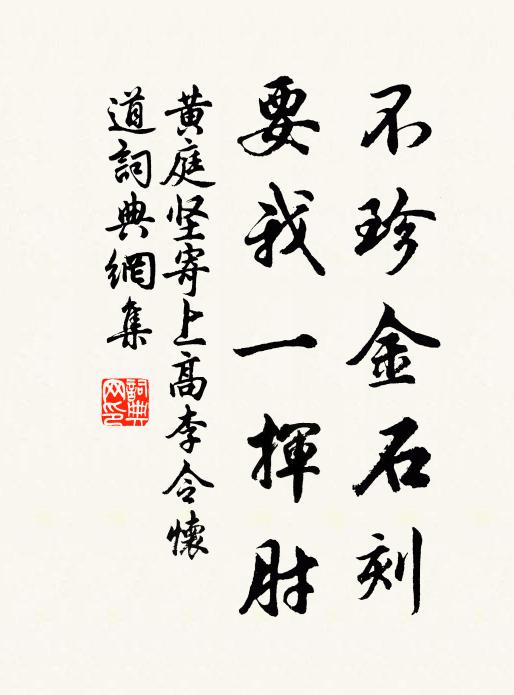 不珍金石刻
要我一揮肘
黄庭坚寄上高李令懷
道詞典網集
詞典
网印